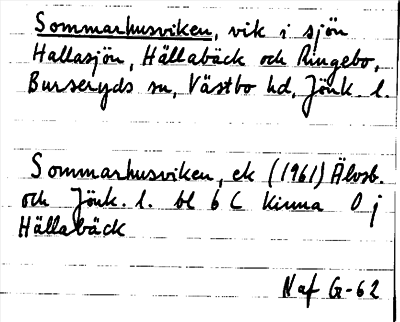 Sommarhusviken, vik i sjön
Hallasjön, Hällabäck och Ringebo,
Burseryds sn, Västbo hd, Jönk. l.
Sommarhusviken, ek (1961) Älvsb.
och Jönk. l. bl 6 C Kinna 0 j
Hällabäck
Naf G-62